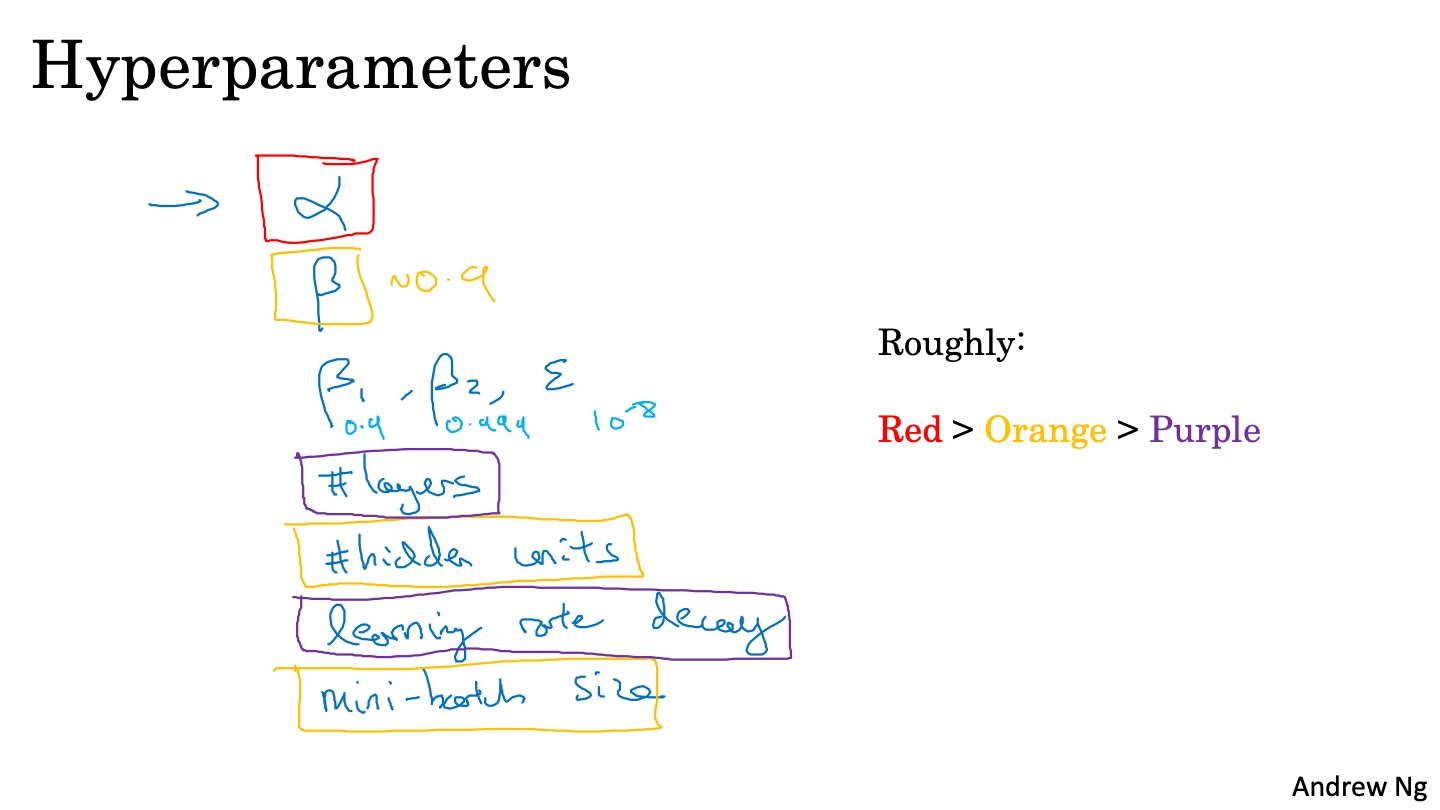 Hyperparameters
α
β ~0.9
β₁, β₂, ε
0.9 0.999 10⁻⁸
#layers
#hidden units
learning rate decay
mini-batch size
Roughly:
Red > Orange > Purple
Andrew Ng